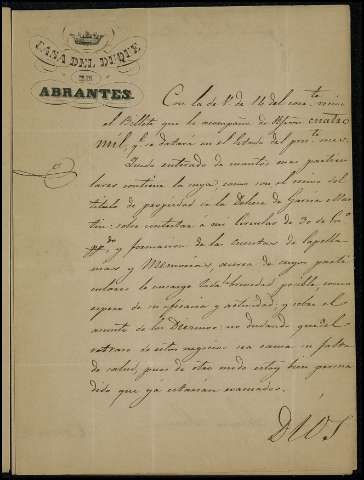 CASA DEL DUQUE
DE
ABRANTES.
Con la de V. de 14 del corr.te vino
el Billete que le acompaña de Rs.vn. cuatro
mil, q.e se datará en el Estado del pres.te mes.
Quedo enterado de cuantos mas particu-
lares contiene la suya, como son el envio del
titulo de propiedad de la Dehesa de Garcia Mar-
tin: sobre contestar á mi Circular de 30 de
pp.do y formacion de la cuenta de Capella-
nias y Memorias, acerca de cuyos parti-
culares le encargo toda brevedad posible, como
espero de su eficacia y actividad; y sobre el
asunto de los Diezmos: no dudando que el
retraso de estos negocios sea causa su falta
de salud, pues de otro modo estoy bien persua-
dido que ya estarian evacuados.
DIOS